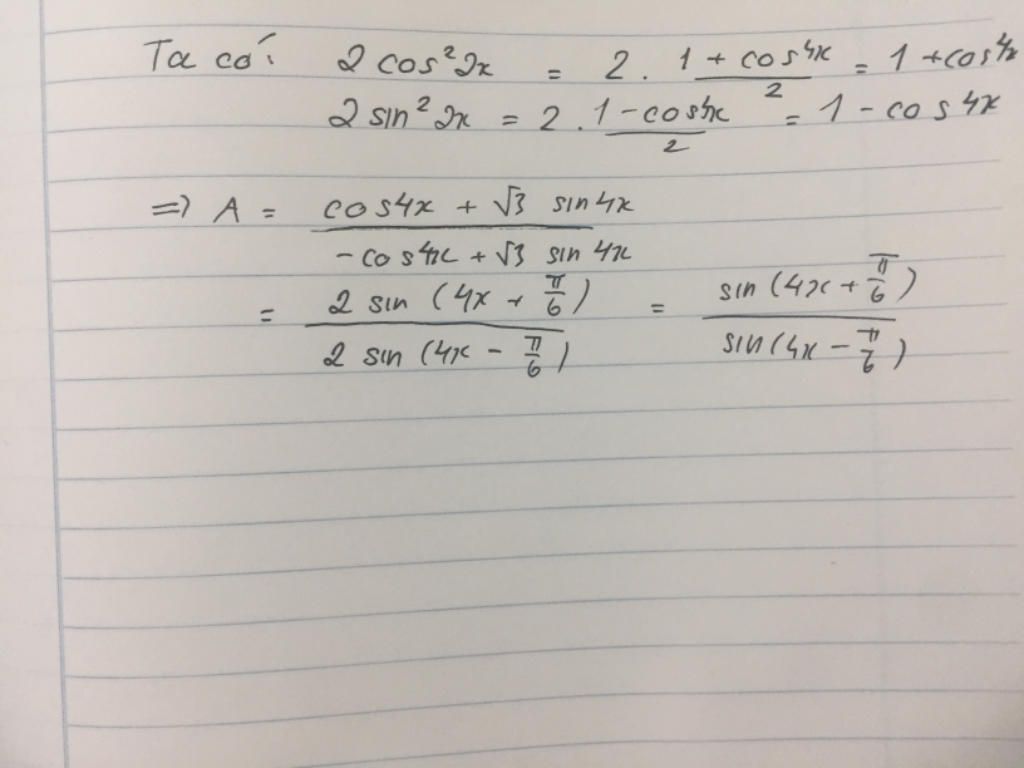 Ta có: 2 cos²2x = 2 . (1 + cos4x)/2 = 1 + cos4x
2 sin²2x = 2 . (1 - cos4x)/2 = 1 - cos4x
=> A = (cos4x + √3 sin4x)/(-cos4x + √3 sin4x)
= (2 sin (4x + π/6))/(2 sin (4x - π/6)) = (sin (4x + π/6))/(sin (4x - π/6))